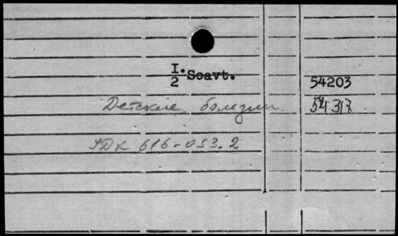 I. Scavt. 54203
2
Детские болезни 54317
УДК 616-053.2